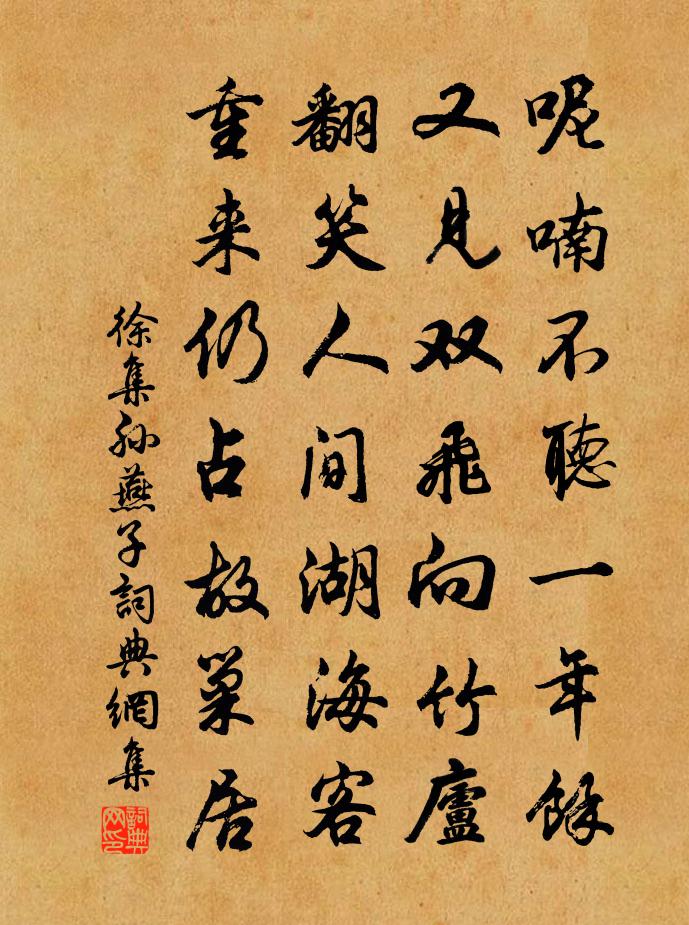 呢喃不聽一年餘
又见双飛向竹廬
翻笑人间湖海客
重来仍占故巢居
徐集孙燕子詞典網集
詞典网印